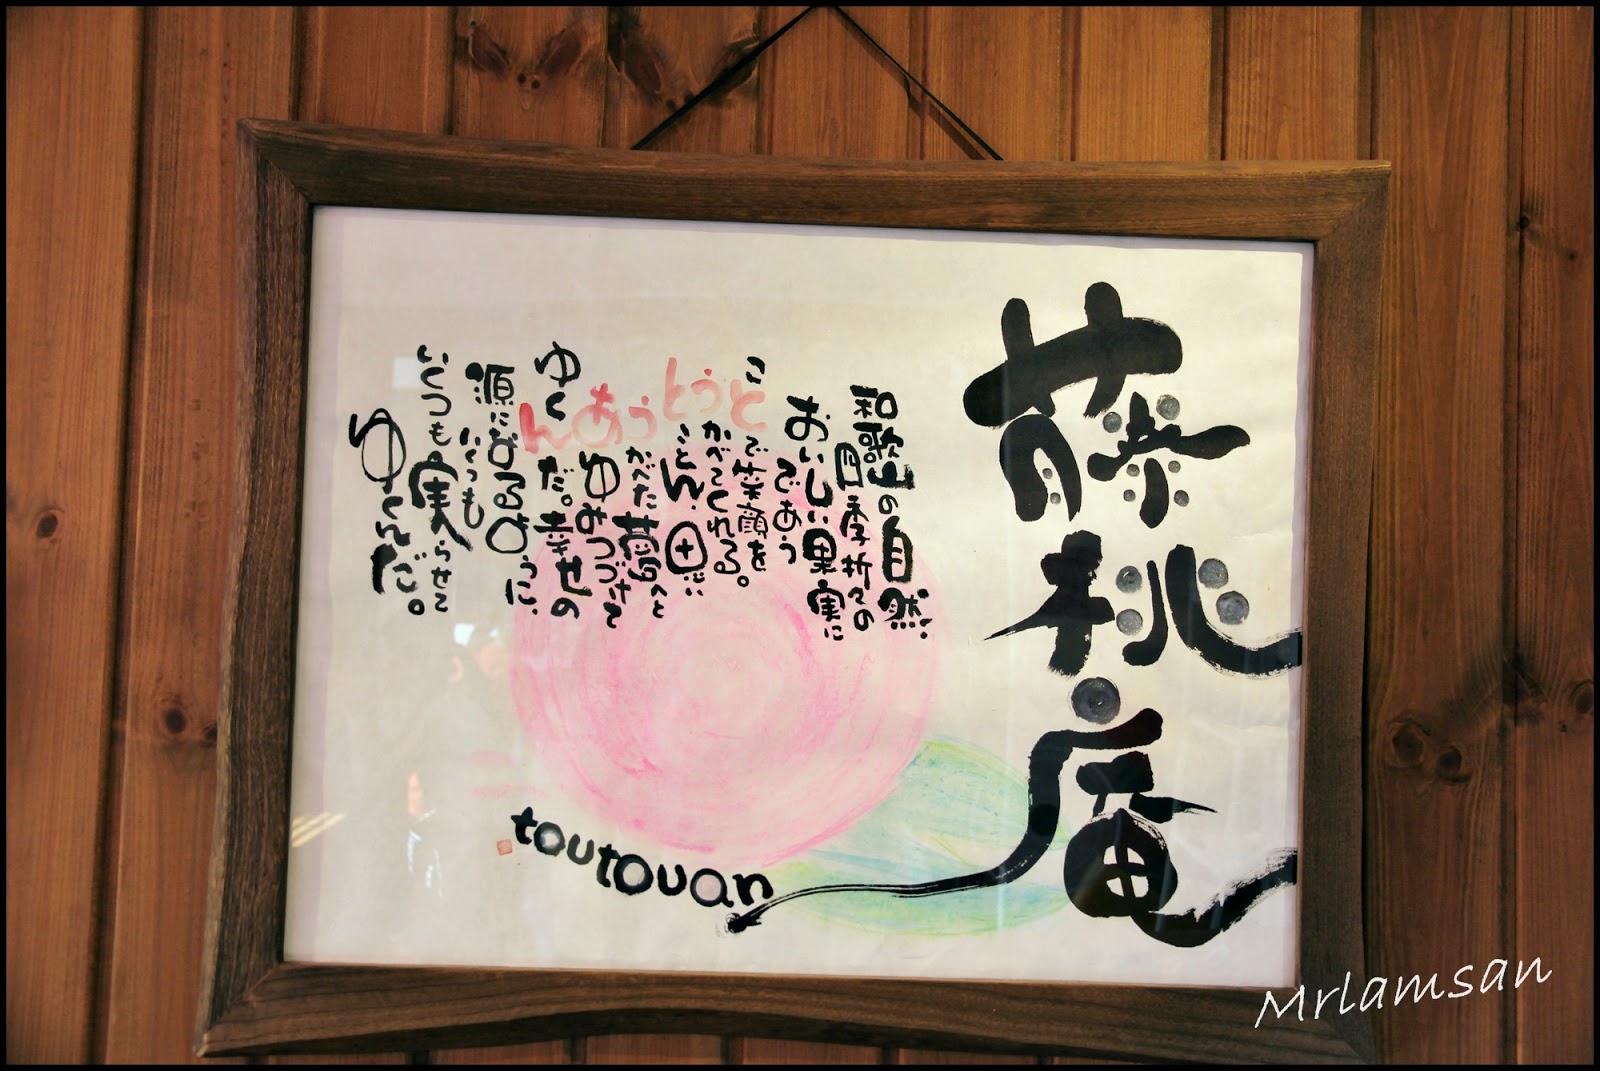 藤桃庵
和歌山の自然、
四季折々の
おいしい果実に
であう
ことで笑顔を
うかべてくれる。
とことん、
うかべた夢へと
あゆみつづけて
ゆくんだ。幸せの
源になるように、
いくつも
いくつも実らせて
ゆくんだ。
toutouan
Mrlamsan